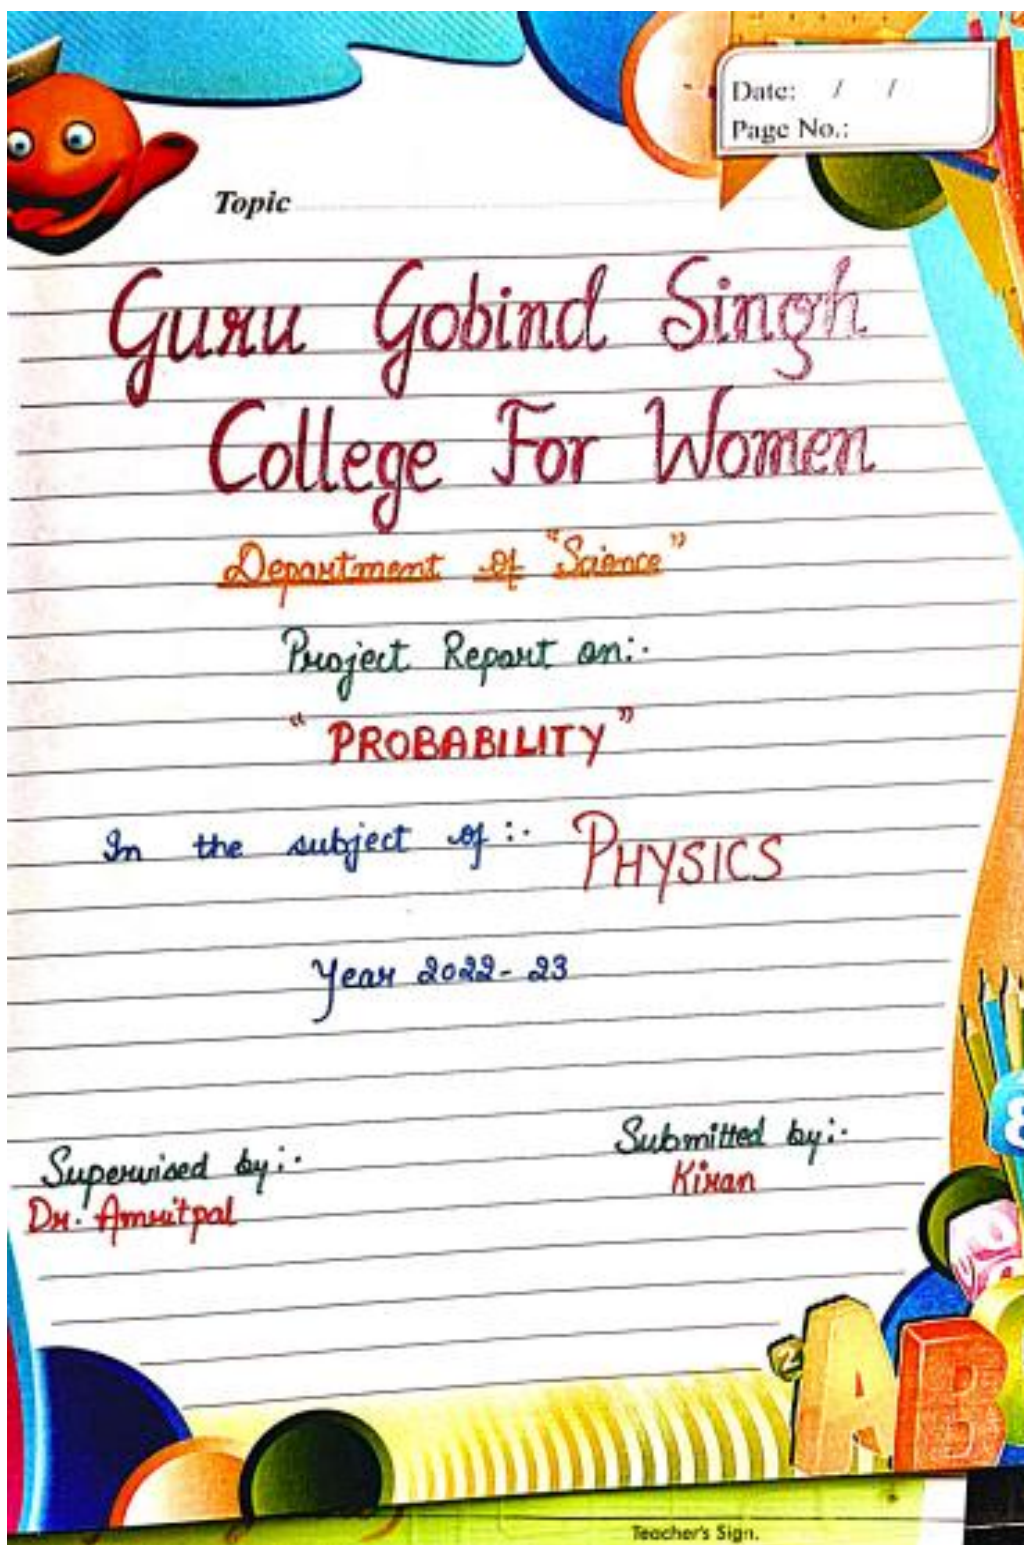 Date: / /
Page No.:
Topic
Guru Gobind Singh
College For Women
Department of "Science"
Project Report on:-
"PROBABILITY"
In the subject of :- PHYSICS
Year 2022-23
Supervised by:-
Dr. Amritpal
Submitted by:-
Kiran
8
2
A B
Teacher's Sign.